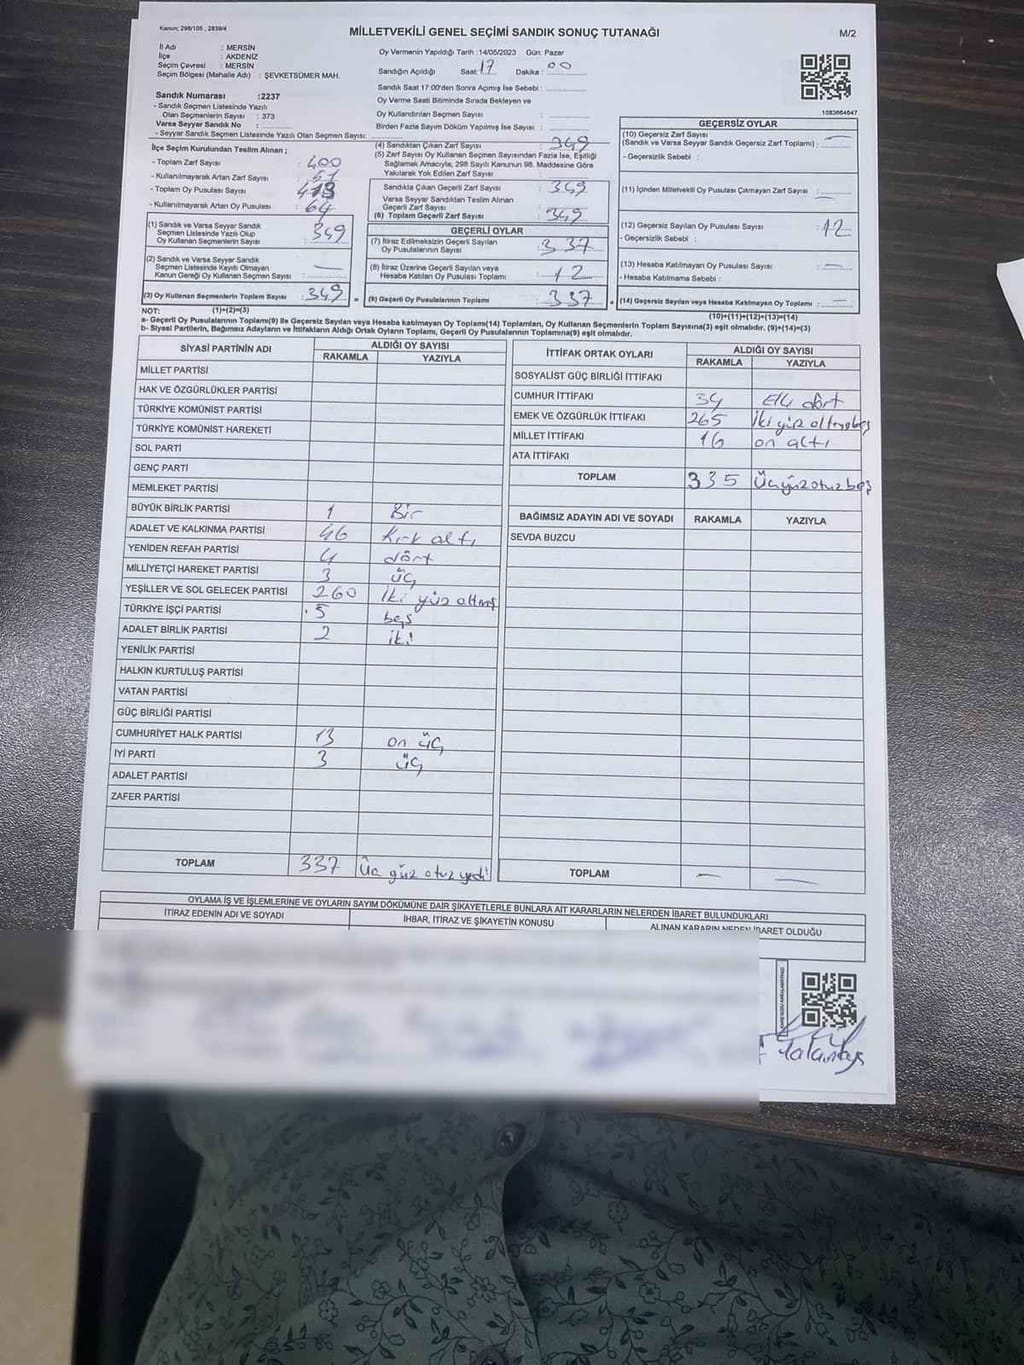 Kanun; 298/105 , 2839/4
MİLLETVEKİLİ GENEL SEÇİMİ SANDIK SONUÇ TUTANAĞI
M/2
İl Adı : MERSİN
İlçe : AKDENİZ
Seçim Çevresi : MERSİN
Seçim Bölgesi (Mahalle Adı) : ŞEVKETSÜMER MAH.
Sandık Numarası :2237
- Sandık Seçmen Listesinde Yazılı
Olan Seçmenlerin Sayısı : 373
Varsa Seyyar Sandık No :
- Seyyar Sandık Seçmen Listesinde Yazılı Olan Seçmen Sayısı:
Oy Vermenin Yapıldığı Tarih :14/05/2023 Gün: Pazar
Sandığın Açıldığı Saat: 17 Dakika : 00
Sandık Saat 17:00'den Sonra Açılmış İse Sebebi :
Oy Verme Saati Bitiminde Sırada Bekleyen ve
Oy Kullandırılan Seçmen Sayısı :
Birden Fazla Sayım Döküm Yapılmış İse Sayısı :
1083664647
İlçe Seçim Kurulundan Teslim Alınan ;
- Toplam Zarf Sayısı : 400
- Kullanılmayarak Artan Zarf Sayısı : 51
- Toplam Oy Pusulası Sayısı :
- Kullanılmayarak Artan Oy Pusulası : 64
(1) Sandık ve Varsa Seyyar Sandık
Seçmen Listesinde Yazılı Olup
Oy Kullanan Seçmenlerin Sayısı : 349
(2) Sandık ve Varsa Seyyar Sandık
Seçmen Listesinde Kayıtlı Olmayan
Kanun Gereği Oy Kullanan Seçmen Sayısı : —
(3) Oy Kullanan Seçmenlerin Toplam Sayısı : 349
(4) Sandıktan Çıkan Zarf Sayısı : 349
(5) Zarf Sayısı Oy Kullanan Seçmen Sayısından Fazla İse, Eşitliği
Sağlamak Amacıyla; 298 Sayılı Kanunun 98. Maddesine Göre
Yakılarak Yok Edilen Zarf Sayısı :
Sandıkta Çıkan Geçerli Zarf Sayısı : 349
Varsa Seyyar Sandıktan Teslim Alınan
Geçerli Zarf Sayısı :
(6) Toplam Geçerli Zarf Sayısı : 349
GEÇERLİ OYLAR
(7) İtiraz Edilmeksizin Geçerli Sayılan
Oy Pusulalarının Sayısı : 337
(8) İtiraz Üzerine Geçerli Sayılan veya
Hesaba Katılan Oy Pusulası Toplamı : 12
(9) Geçerli Oy Pusulalarının Toplamı : 337
GEÇERSİZ OYLAR
(10) Geçersiz Zarf Sayısı
(Sandık ve Varsa Seyyar Sandık Geçersiz Zarf Toplamı) : —
- Geçersizlik Sebebi :
(11) İçinden Milletvekili Oy Pusulası Çıkmayan Zarf Sayısı : —
(12) Geçersiz Sayılan Oy Pusulası Sayısı : 12
- Geçersizlik Sebebi :
(13) Hesaba Katılmayan Oy Pusulası Sayısı : —
- Hesaba Katılmama Sebebi :
(14) Geçersiz Sayılan veya Hesaba Katılmayan Oy Toplamı : —
NOT: (1)+(2)=(3) (10)+(11)+(12)+(13)=(14)
a- Geçerli Oy Pusulalarının Toplamı(9) İle Geçersiz Sayılan veya Hesaba katılmayan Oy Toplam(14) Toplamları, Oy Kullanan Seçmenlerin Toplam Sayısına(3) eşit olmalıdır. (9)+(14)=(3)
b- Siyasi Partilerin, Bağımsız Adayların ve İttifakların Aldığı Ortak Oyların Toplamı, Geçerli Oy Pusulalarının Toplamına(9) eşit olmalıdır.
SİYASİ PARTİNİN ADI ALDIĞI OY SAYISI
RAKAMLA YAZIYLA
MİLLET PARTİSİ
HAK VE ÖZGÜRLÜKLER PARTİSİ
TÜRKİYE KOMÜNİST PARTİSİ
TÜRKİYE KOMÜNİST HAREKETİ
SOL PARTİ
GENÇ PARTİ
MEMLEKET PARTİSİ
BÜYÜK BİRLİK PARTİSİ 1 Bir
ADALET VE KALKINMA PARTİSİ 46 Kırk altı
YENİDEN REFAH PARTİSİ 4 dört
MİLLİYETÇİ HAREKET PARTİSİ 3 üç
YEŞİLLER VE SOL GELECEK PARTİSİ 260 İki yüz altmış
TÜRKİYE İŞÇİ PARTİSİ 5 beş
ADALET BİRLİK PARTİSİ 2 iki
YENİLİK PARTİSİ
HALKIN KURTULUŞ PARTİSİ
VATAN PARTİSİ
GÜÇ BİRLİĞİ PARTİSİ
CUMHURİYET HALK PARTİSİ 13 on üç
İYİ PARTİ 3 üç
ADALET PARTİSİ
ZAFER PARTİSİ
TOPLAM 337 Üç yüz otuz yedi
İTTİFAK ORTAK OYLARI ALDIĞI OY SAYISI
RAKAMLA YAZIYLA
SOSYALİST GÜÇ BİRLİĞİ İTTİFAKI
CUMHUR İTTİFAKI 54 Elli dört
EMEK VE ÖZGÜRLÜK İTTİFAKI 265 İki yüz altmışbeş
MİLLET İTTİFAKI 16 on altı
ATA İTTİFAKI
TOPLAM 335 Üçyüzotuzbeş
BAĞIMSIZ ADAYIN ADI VE SOYADI RAKAMLA YAZIYLA
SEVDA BUZCU
TOPLAM — —
OYLAMA İŞ VE İŞLEMLERİNE VE OYLARIN SAYIM DÖKÜMÜNE DAİR ŞİKAYETLERLE BUNLARA AİT KARARLARIN NELERDEN İBARET BULUNDUKLARI
İTİRAZ EDENİN ADI VE SOYADI İHBAR, İTİRAZ VE ŞİKAYETİN KONUSU ALINAN KARARIN NEDEN İBARET OLDUĞU